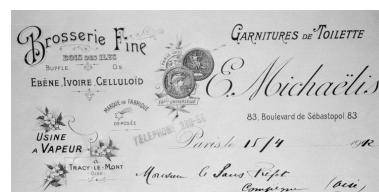 Brosserie Fine
BOIS DES ILES
BUFFLE OS
EBÈNE, IVOIRE, CELLULOÏD
MARQUE DE FABRIQUE
DÉPOSÉE
USINE
A VAPEUR
à
TRACY-LE-MONT
(OISE)
GARNITURES DE TOILETTE
E. Michaëlis
83, Boulevard de Sébastopol 83
TÉLÉPHONE
Paris le 15/4 1912
Monsieur le Sous Préfet
Compiègne (Oise)